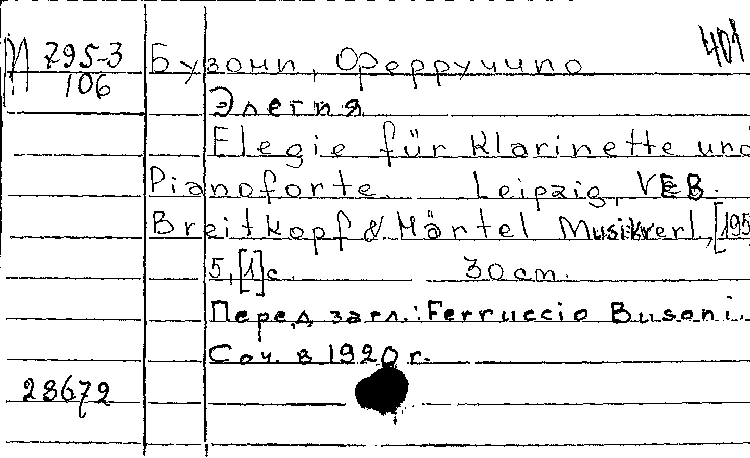 401
П 795-3 Бузони, Ферруччио
106
Элегия
Elegie für Klarinette und
Pianoforte. Leipzig, VEB.
Breitkopf & Härtel Musikverl., [195
5, [1] с. 30 cm.
Перед загл.: Ferruccio Busoni.
Соч. в 1920 г.
28672